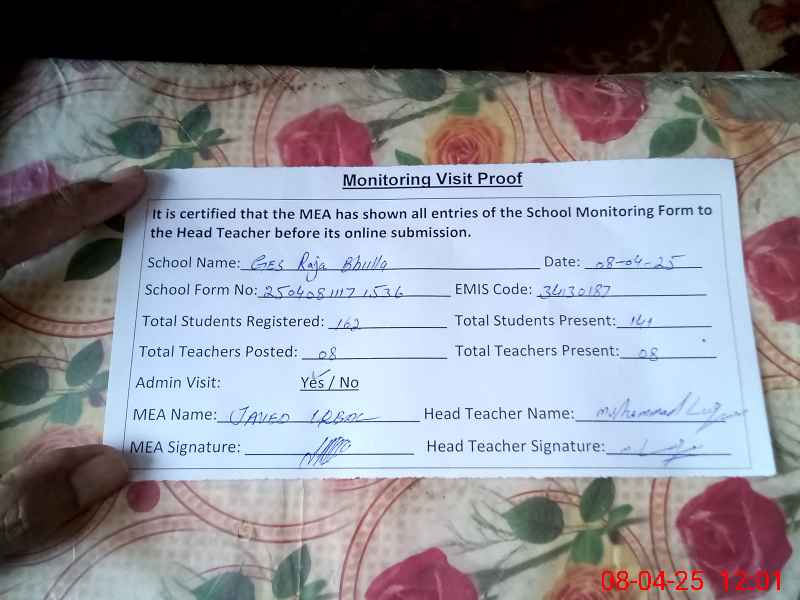 Monitoring Visit Proof
It is certified that the MEA has shown all entries of the School Monitoring Form to
the Head Teacher before its online submission.
School Name: GES Raja Bhulla Date: 08-04-25
School Form No: EMIS Code: 34130187
Total Students Registered: 162 Total Students Present: 141
Total Teachers Posted: 08 Total Teachers Present: 08
Admin Visit: Yes / No
MEA Name: JAVED IQBAL Head Teacher Name: Muhammad
MEA Signature: Head Teacher Signature:
08-04-25 12:01